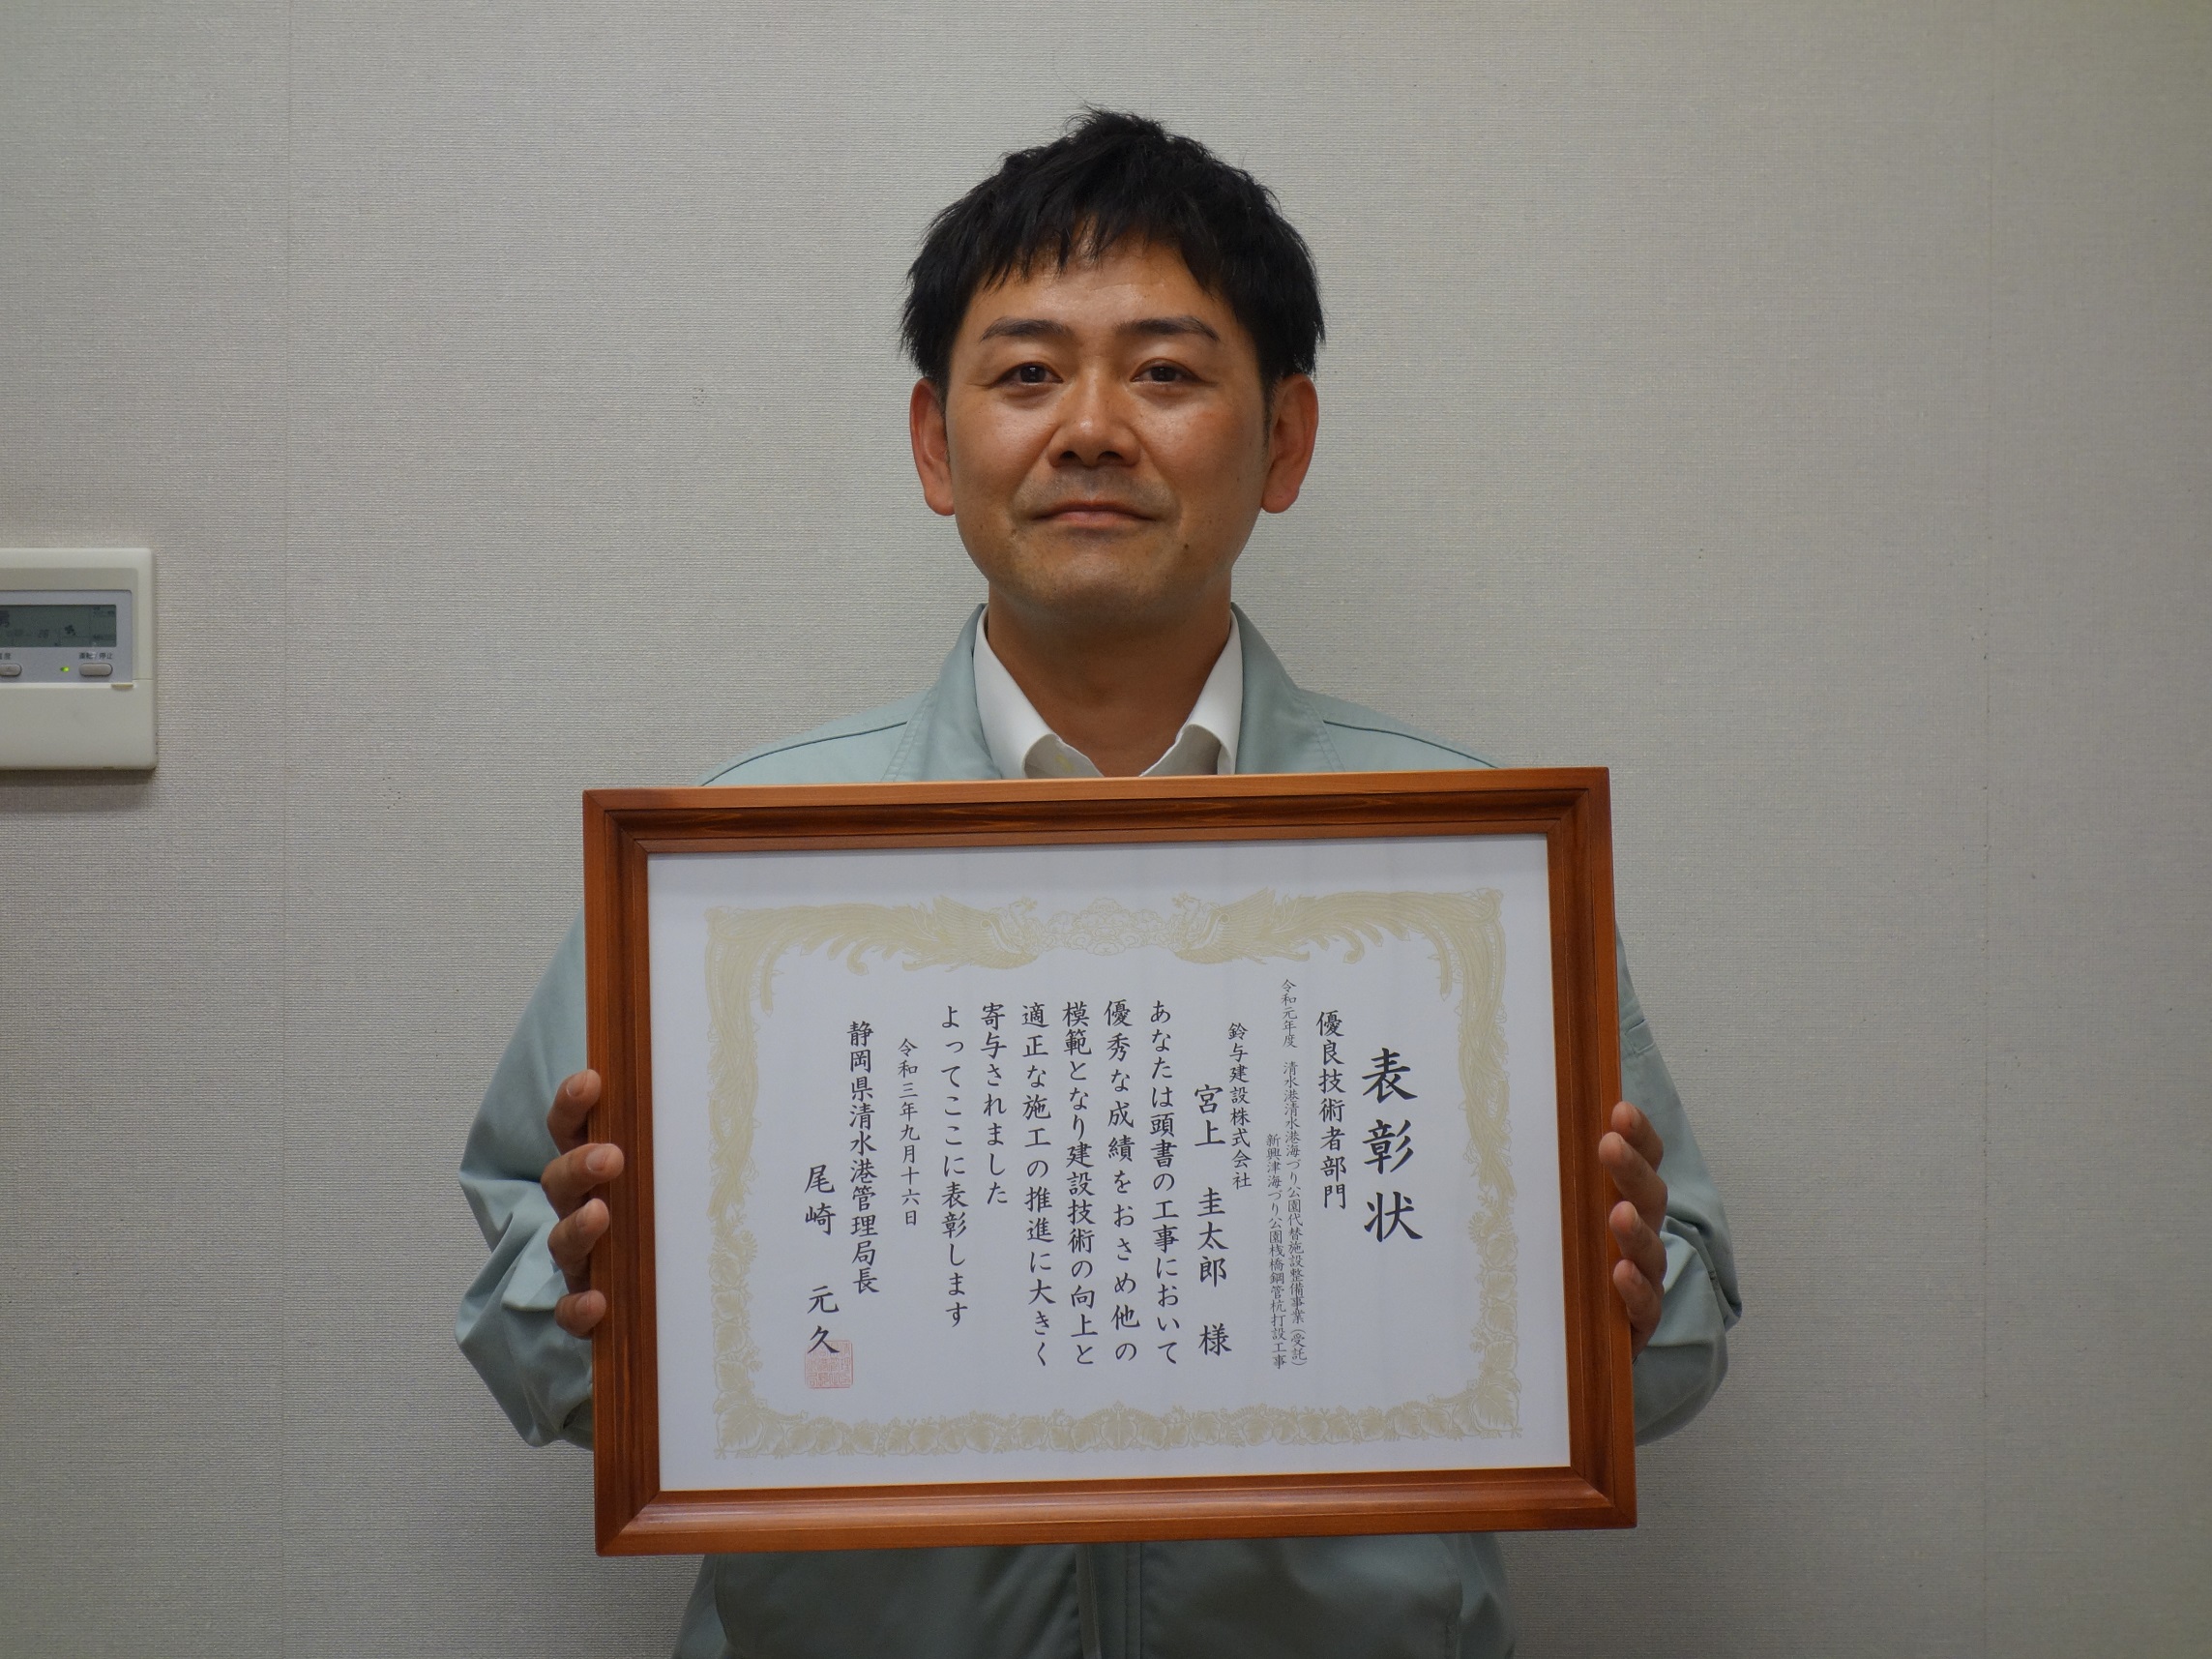 表彰状
優良技術者部門
令和元年度　清水港清水港海づり公園代替施設整備事業（受託）
新興津海づり公園桟橋鋼管杭打設工事
鈴与建設株式会社
宮上　圭太郎　様
あなたは頭書の工事において
優秀な成績をおさめ他の
模範となり建設技術の向上と
適正な施工の推進に大きく
寄与されました
よってここに表彰します
令和三年九月十六日
静岡県清水港管理局長
尾崎　元久
運転/停止